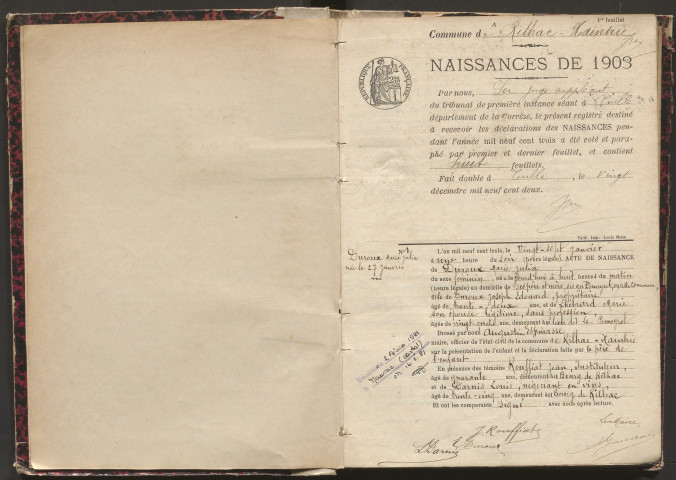 1er feuillet
Commune d à Rilhac-Xaintrie
NAISSANCES DE 1903
RÉPUBLIQUE FRANÇAISE
Par nous, 1er juge suppléant
du tribunal de première instance séant à Tulle
département de la Corrèze, le présent registre destiné
à recevoir les déclarations des NAISSANCES pen-
dant l'année mil neuf cent trois a été coté et para-
phé par premier et dernier feuillet, et contient
huit feuillets.
Fait double à Tulle, le vingt
décembre mil neuf cent deux.
Tulle, Imp. Louis Moles
N° 1
Duroux Marie Julia
née le 27 Janvier
L'an mil neuf cent trois, le Vingt-sept Janvier
à une heure du Soir (heure légale), ACTE DE NAISSANCE
de Duroux Marie Julia
du sexe féminin, née aujourd'hui à huit heures du matin
(heure légale) au domicile de ses père et mère, sis en
fille de Duroux Joseph Edouard, propriétaire
âgé de trente-deux ans, et de Marie
son épouse légitime, sans profession,
âgée de vingt ans, demeurant au lieu de le
Dressé par nous Augustin Espinasse
maire, officier de l'état civil de la commune de Rilhac-Xaintrie
sur la présentation de l'enfant et la déclaration faite par le père de
l'enfant
En présence des témoins Rouffiat Jean, Instituteur,
âgé de quarante ans, demeurant au Bourg de Rilhac
et de Darnis Louis, négociant en vins,
âgé de trente-cinq ans, demeurant au Bourg de Rilhac
Et ont les comparants signé avec nous après lecture.
J. Rouffiat
Le Maire
L. Darnis
Duroux